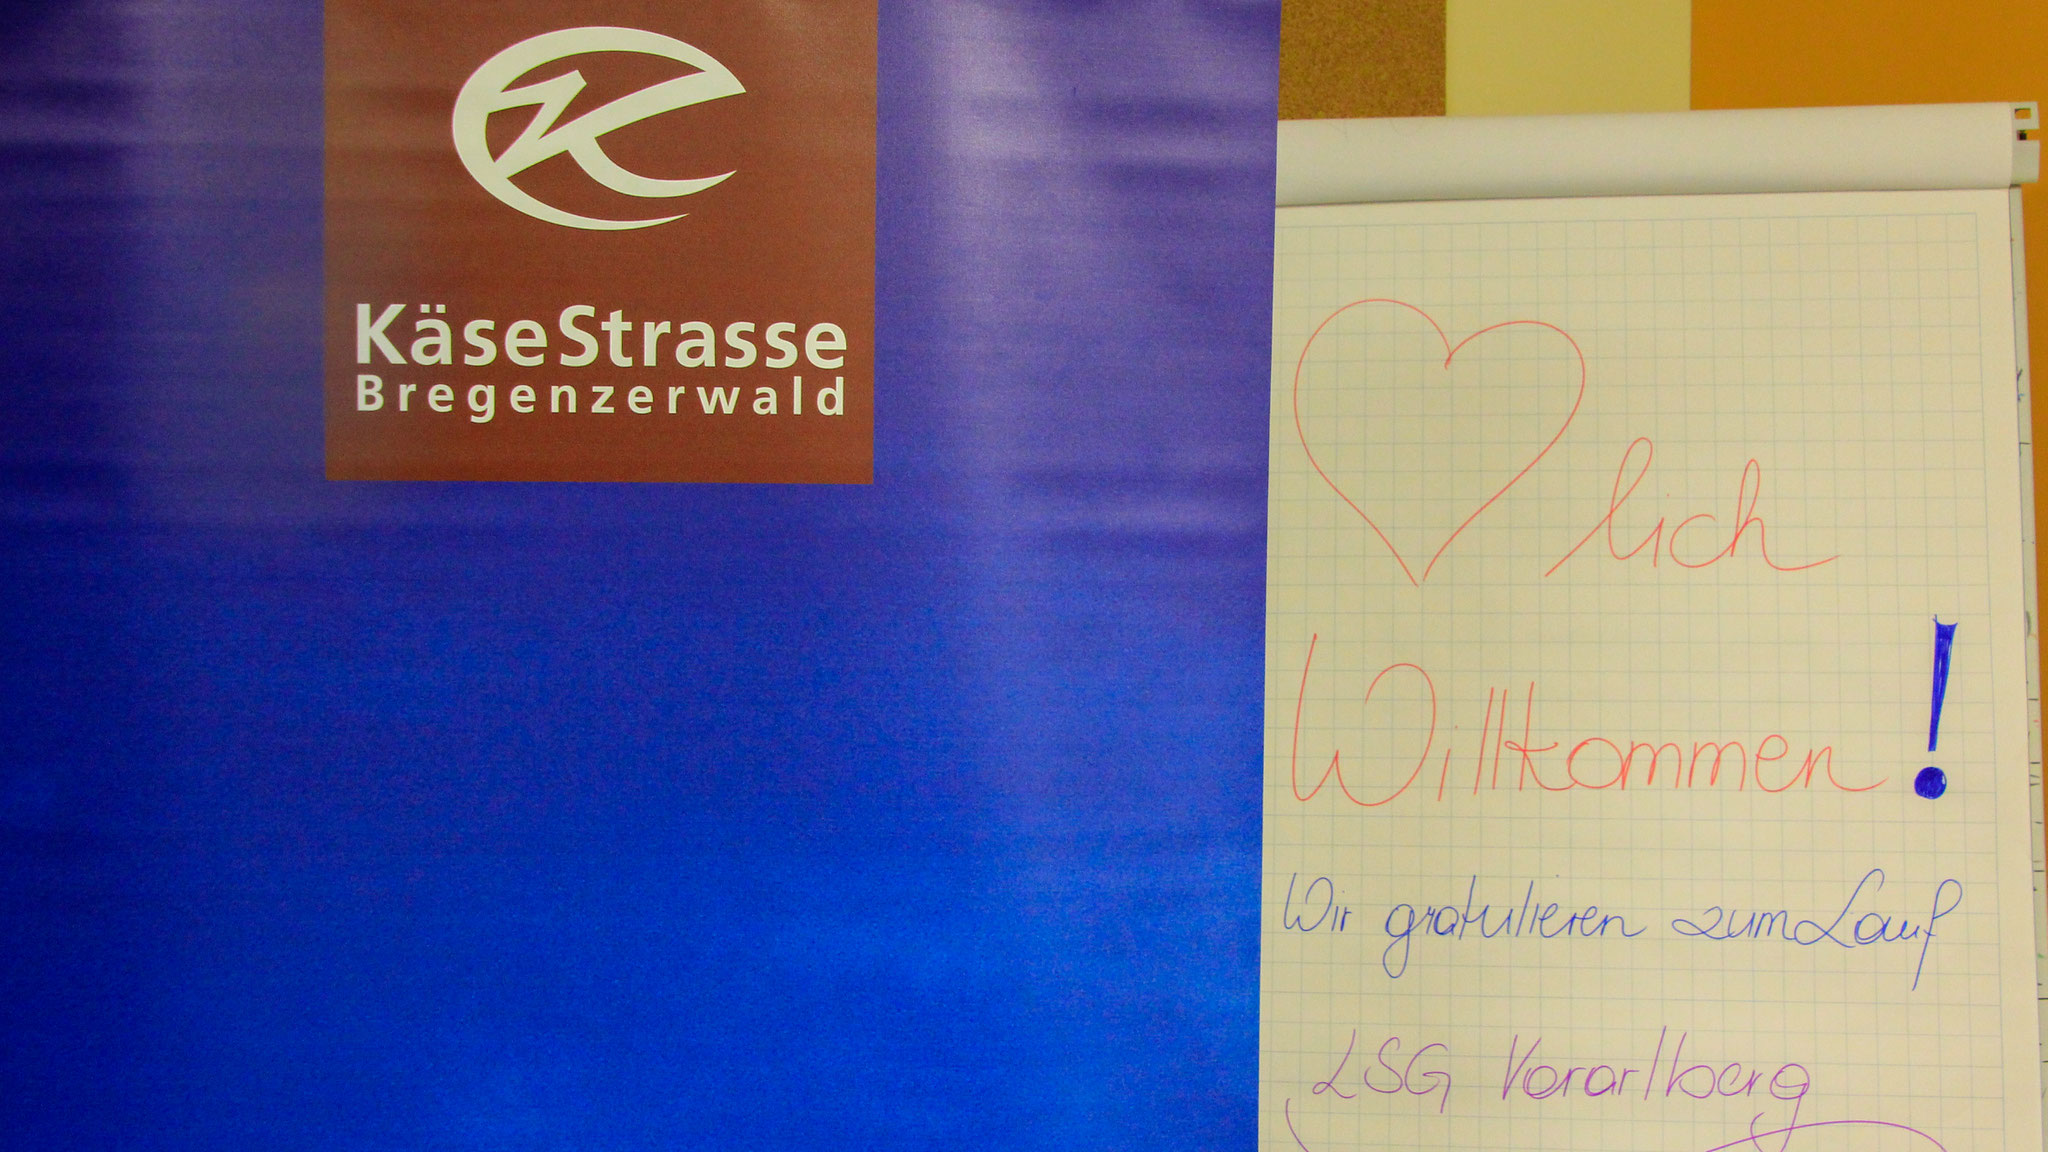 KäseStrasse
Bregenzerwald
lich
Willkommen!
Wir gratulieren zum Lauf
LSG Vorarlberg